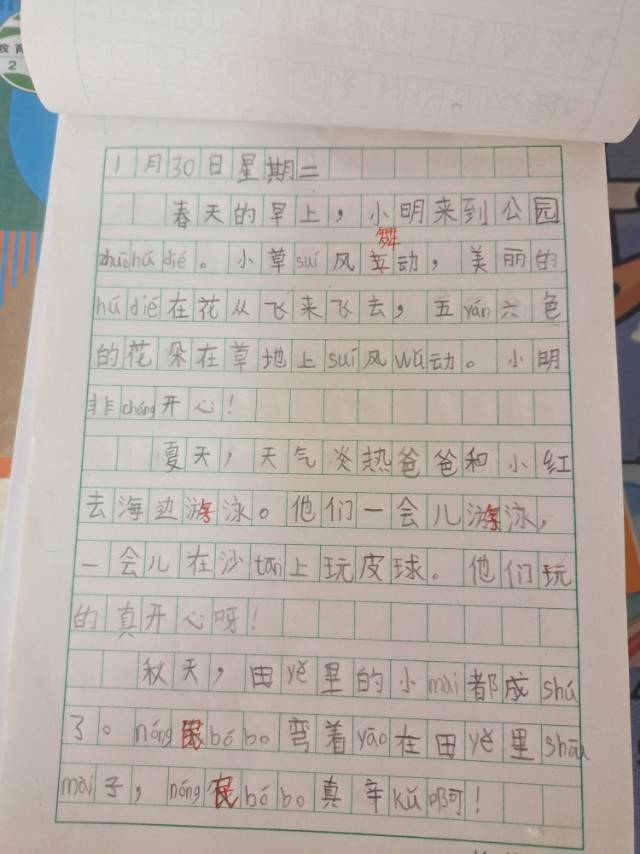 教育
2
1月30日星期二
春天的早上，小明来到公园
舞
zhuōhúdié。小草suí风动，美丽的
húdié在花从飞来飞去，五yán六色
的花朵在草地上suí风wǔ动。小明
非cháng开心！
夏天，天气炎热爸爸和小红
去海边游泳。他们一会儿游泳，
一会儿在沙tān上玩皮球。他们玩
的真开心呀！
秋天，田yě里的小mài都成shú
了。nóng民bóbo弯着yāo在田yě里shōu
mài子，nóng民bóbo真辛kǔ啊！